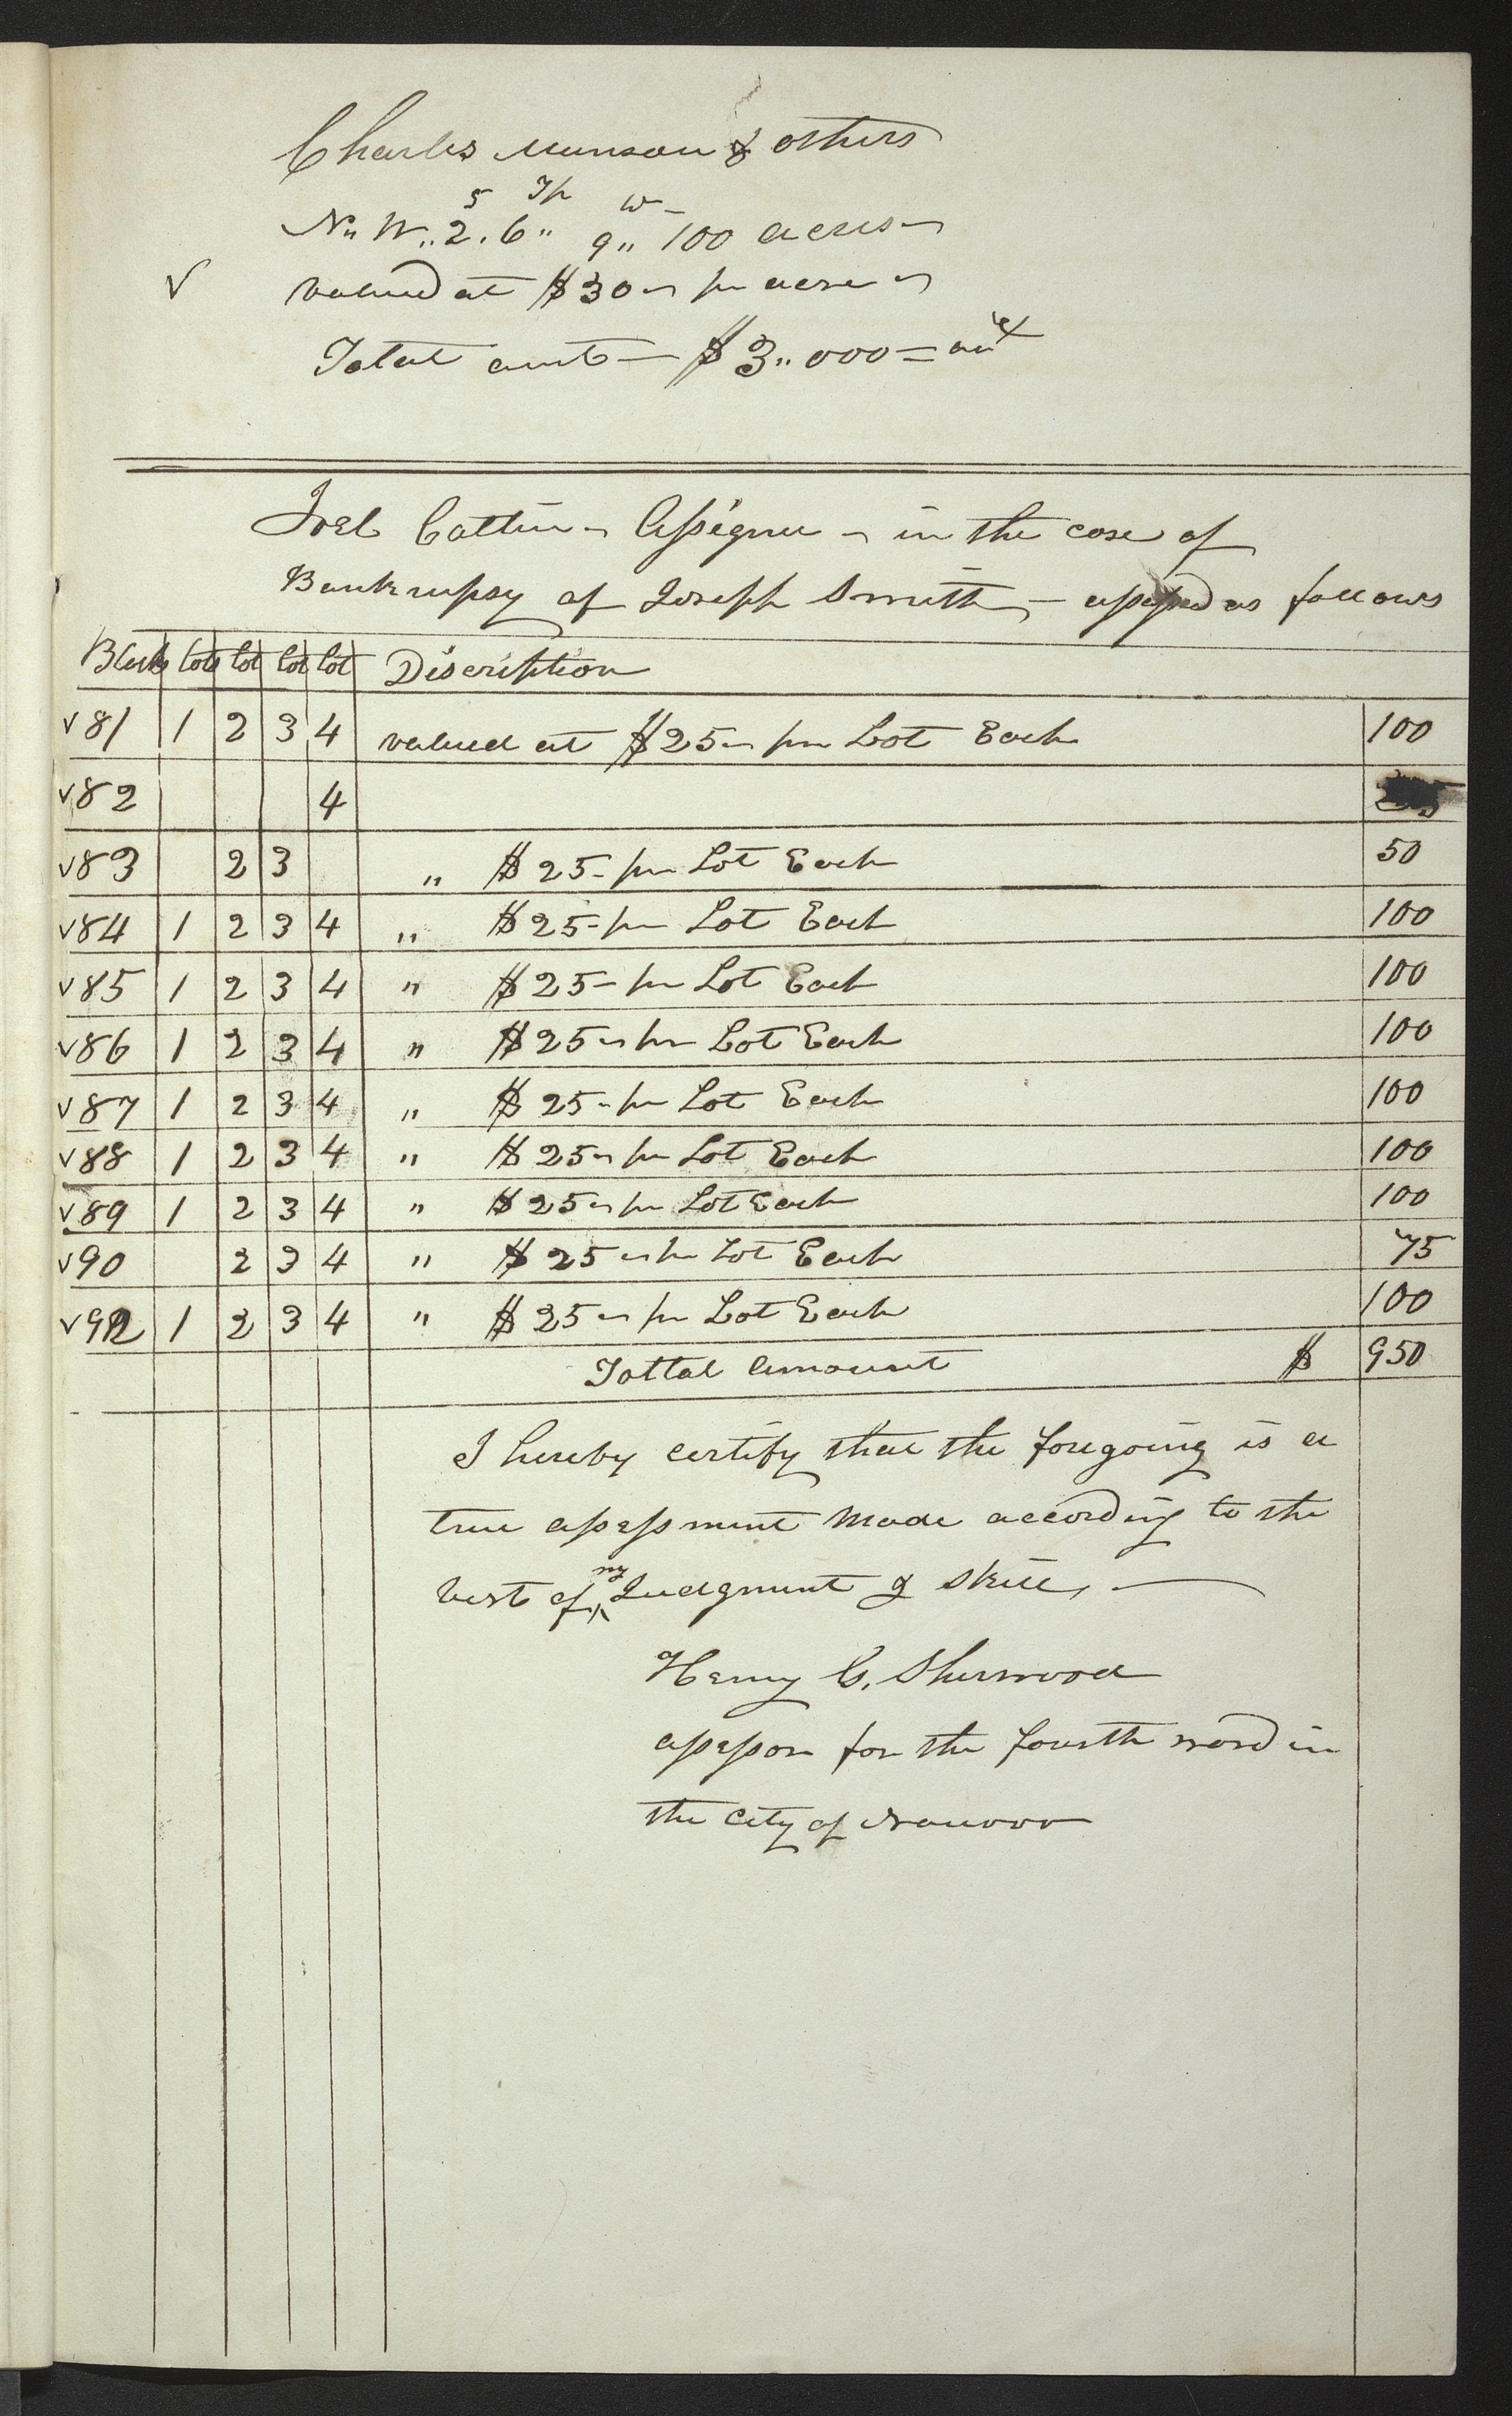 Charles Munson & others
5 Tp W
N" W" 2. 6" 9" 100 acres
✓ valued at $30 pr acre
Total amt — $3"000 =
Joel Cattin Assignee in the case of
Bankrupsy of Joseph Smith — assessed as follows
Blocks lots lot lot lot Discription
✓81 1 2 3 4 valued at $25 pr Lot Each 100
✓82 4
✓83 2 3 " $25 - pr Lot Each 50
✓84 1 2 3 4 " $25 - pr Lot Each 100
✓85 1 2 3 4 " $25 - pr Lot Each 100
✓86 1 2 3 4 " $25 pr Lot Each 100
✓87 1 2 3 4 " $25 - pr Lot Each 100
✓88 1 2 3 4 " $25 pr Lot Each 100
✓89 1 2 3 4 " $25 pr Lot Each 100
✓90 2 3 4 " $25 pr Lot Each 75
✓92 1 2 3 4 " $25 pr Lot Each 100
Tottal Amount $ 950
I hereby certify that the foregoing is a
true assessment made according to the
best of my Judgment & skill, —
Henry G. Sherwood
assessor for the fourth ward in
the city of Nauvoo